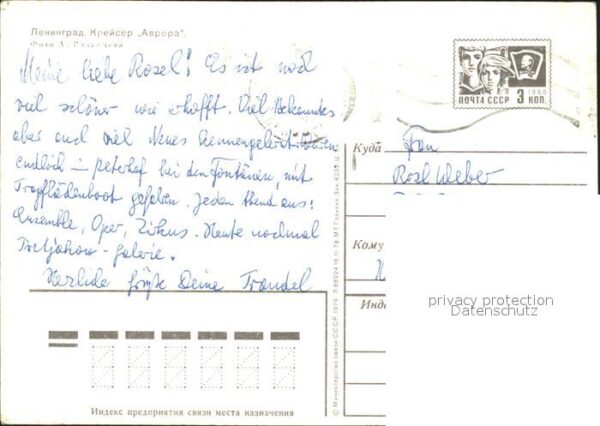 Ленинград. Крейсер „Аврора“.
Фото А. Рязанцева
Meine liebe Rosel! Es ist noch
viel schöner wie erhofft. Viel Bekanntes
aber auch viel Neues kennengelernt. Waren
endlich in Peterhof bei den Fontänen, mit
Tragflächenboot gefahren. Jeden Abend aus:
Ensemble, Oper, Zirkus. Heute nochmal
Tretjakow-Galerie.
Herzliche Grüße Deine Traudel
ПОЧТА СССР 3 КОП.
1966
Куда
Frau
Rosl Weber
Кому
Инде
© Министерство связи СССР. 1979
Индекс предприятия связи места назначения
privacy protection
Datenschutz